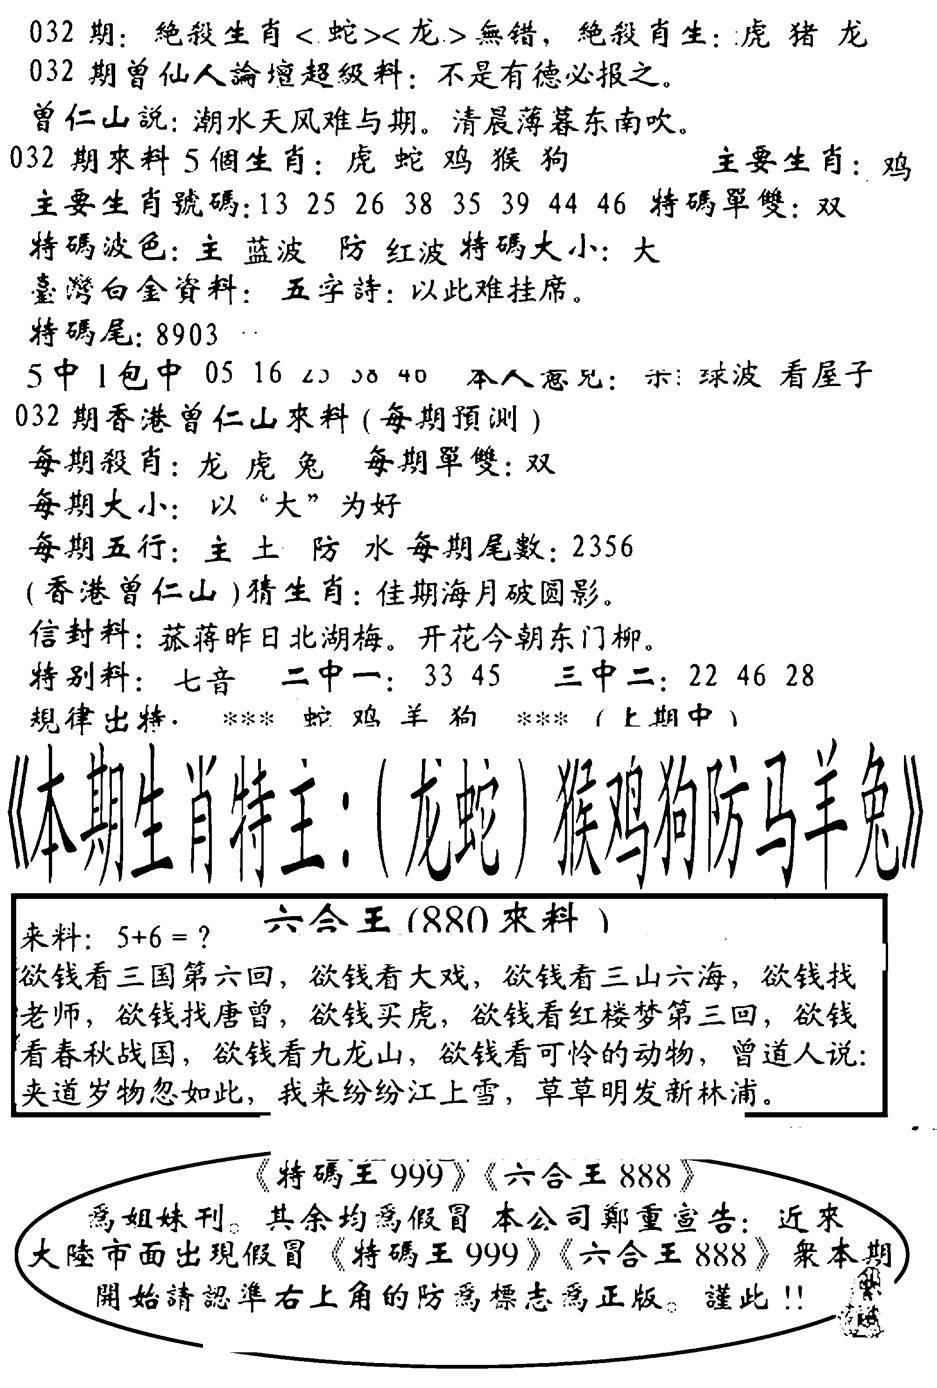 032 期: 絶殺生肖<蛇><龙>無错, 絶殺肖生: 虎 猪 龙
032 期曾仙人論壇超級料: 不是有德必报之。
曾仁山説: 潮水天风难与期。清晨薄暮东南吹。
032 期來料 5 個生肖: 虎 蛇 鸡 猴 狗 主要生肖: 鸡
主要生肖號碼: 13 25 26 38 35 39 44 46 特碼單雙: 双
特碼波色: 主 蓝波 防 红波 特碼大小: 大
臺灣白金資料: 五字詩: 以此难挂席。
特碼尾: 8903
5 中 1 包中 05 16 25 38 46 本人意見: 球波 看屋子
032 期香港曾仁山來料 (每期預測)
每期殺肖: 龙 虎 兔 每期單雙: 双
每期大小: 以“大”为好
每期五行: 主 土 防 水 每期尾數: 2356
(香港曾仁山)猜生肖: 佳期海月破圆影。
信封料: 菰蒋昨日北湖梅。开花今朝东门柳。
特别料: 七音 二中一: 33 45 三中二: 22 46 28
規律出特: *** 蛇 鸡 羊 狗 *** (上期中)
《本期生肖特主:(龙蛇)猴鸡狗防马羊兔》
六合王(880來料)
来料: 5+6=?
欲钱看三国第六回, 欲钱看大戏, 欲钱看三山六海, 欲钱找
老师, 欲钱找唐曾, 欲钱买虎, 欲钱看红楼梦第三回, 欲钱
看春秋战国, 欲钱看九龙山, 欲钱看可怜的动物, 曾道人说:
夹道岁物忽如此, 我来纷纷江上雪, 草草明发新林浦。
《特碼王 999》《六合王 888》
爲姐妹刊。其余均爲假冒 本公司鄭重宣告: 近來
大陸市面出現假冒《特碼王 999》《六合王 888》衆本期
開始請認準右上角的防爲標志爲正版。謹此!!